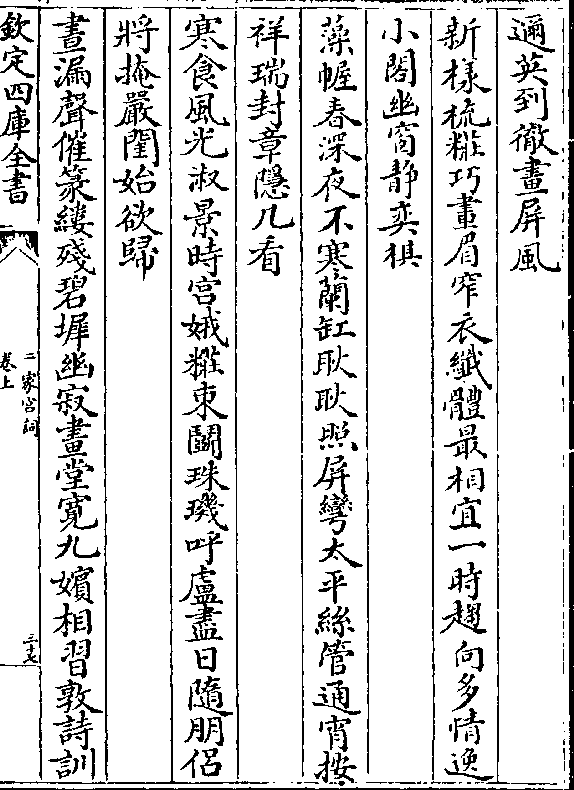 邇英到徹畫屏風
新樣梳糚巧畫眉窄衣纖體最相宜一時趨向多情逸
小閣幽窗静奕棋
藻幄春深夜不寒蘭缸耿耿照屏彎太平絲管通宵按
祥瑞封章隱几看
寒食風光淑景時宫娥糚束鬭珠璣呼盧盡日隨朋侣
將掩嚴闈始欲歸
晝漏聲催篆縷殘碧墀幽寂畫堂寛九嬪相習敦詩訓
欽定四庫全書
二家宫詞
卷上
三十七